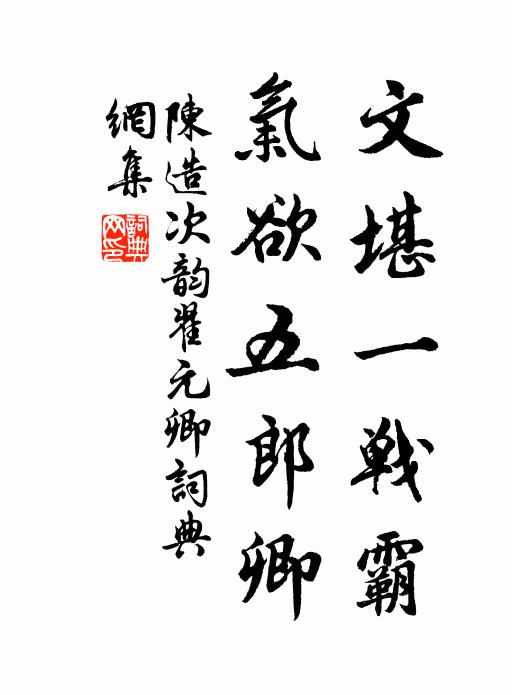 文堪一戰霸
氣欲五郎卿
陳造次韵翟元卿詞典
網集
詞典
网印